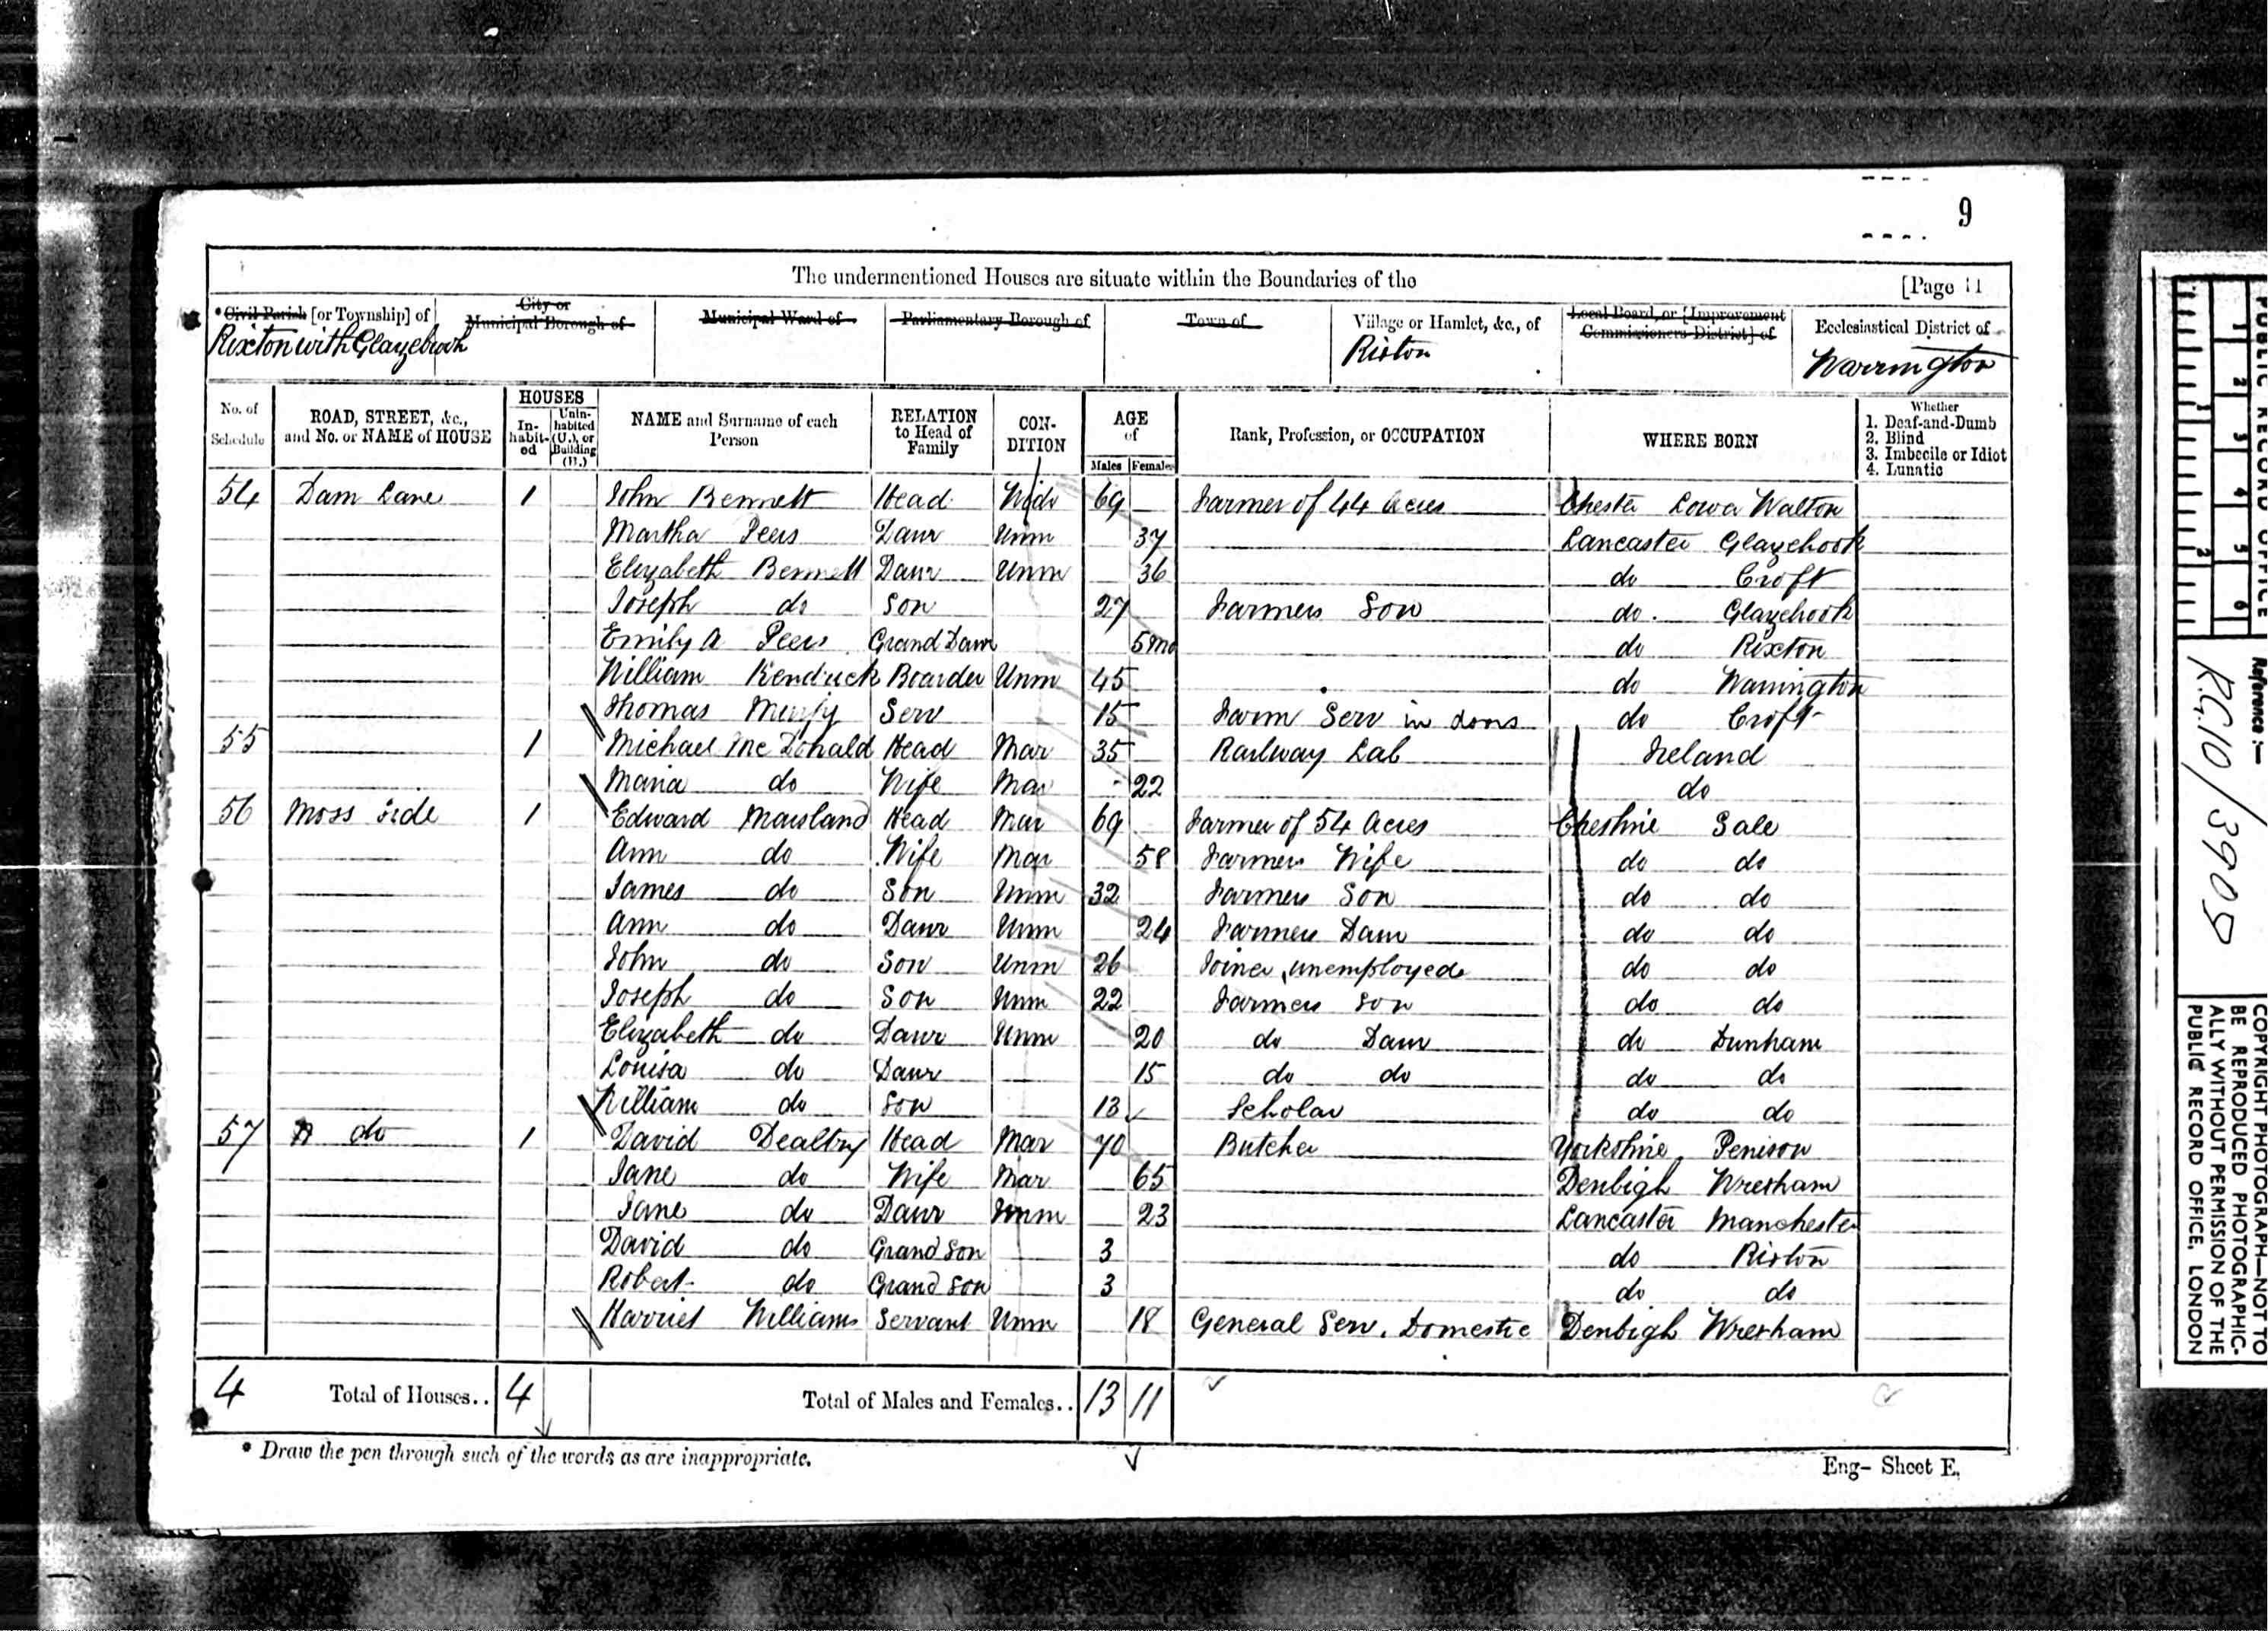 9
The undermentioned Houses are situate within the Boundaries of the [Page 11
* Civil Parish [or Township] of
Rixton with Glazebrook
City or Municipal Borough of
Municipal Ward of
Parliamentary Borough of
Town of
Village or Hamlet, &c., of
Rixton
Local Board, or [Improvement Commissioners District] of
Ecclesiastical District of
Warrington
No. of Schedule
ROAD, STREET, &c., and No. or NAME of HOUSE
HOUSES
In-habit-ed
Unin-habited (U.), or Building (B.)
NAME and Surname of each Person
RELATION to Head of Family
CON-DITION
AGE of
Males Females
Rank, Profession, or OCCUPATION
WHERE BORN
Whether
1. Deaf-and-Dumb
2. Blind
3. Imbecile or Idiot
4. Lunatic
54 Dam Lane 1 John Bennett Head Widr 69 Farmer of 44 Acres Chester Lower Walton
Martha Peers Daur Unm 37 Lancaster Glazebook
Elizabeth Bennett Daur Unm 36 do Croft
Joseph do Son 27 Farmers Son do. Glazebook
Emily A Peers Grand Daur 5 mo do Rixton
William Kendrick Boarder Unm 45 do Warrington
Thomas Serv 15 Farm Serv in doors do Croft
55 1 Michael Mc Donald Head Mar 35 Railway Lab Ireland
Maria do Wife Mar 22 do
56 Moss Side 1 Edward Marsland Head Mar 69 Farmer of 54 Acres Cheshire Sale
Ann do Wife Mar 58 Farmers Wife do do
James do Son Unm 32 Farmers Son do do
Ann do Daur Unm 24 Farmers Daur do do
John do Son Unm 26 Joiner, unemployed do do
Joseph do Son Unm 22 Farmers Son do do
Elizabeth do Daur Unm 20 do Daur do Dunham
Louisa do Daur 15 do do do do
William do Son 13 Scholar do do
57 do 1 David Dealtry Head Mar 70 Butcher Yorkshire Penison
Jane do Wife Mar 65 Denbigh Wrexham
Jane do Daur Unm 23 Lancaster Manchester
David do Grand Son 3 do Rixton
Robert do Grand Son 3 do do
Harriet Williams Servant Unm 18 General Serv. Domestic Denbigh Wrexham
4 Total of Houses.. 4 Total of Males and Females.. 13 11
* Draw the pen through such of the words as are inappropriate.
Eng- Sheet E.
PUBLIC RECORD OFFICE
1 2 3 4 5 6
1 2
Reference :-
R.G. 10/3905
COPYRIGHT PHOTOGRAPH—NOT TO
BE REPRODUCED PHOTOGRAPHIC-
ALLY WITHOUT PERMISSION OF THE
PUBLIC RECORD OFFICE, LONDON